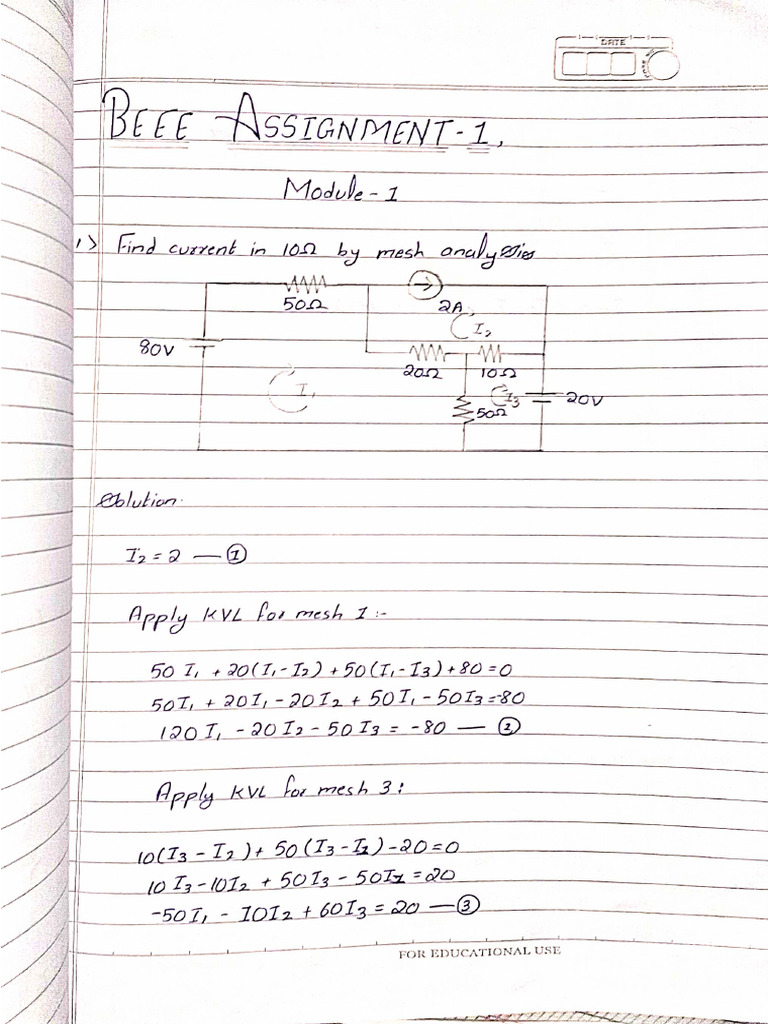 DATE
BEEE ASSIGNMENT-1.
Module-1
1> Find current in 10Ω by mesh analysis
50Ω
2A
I2
80V
20Ω 10Ω
I1
I3
20V
50Ω
Solution.
I2 = 2 — ①
Apply KVL for mesh 1:-
50 I1 + 20(I1-I2) + 50(I1-I3) + 80 = 0
50I1 + 20I1 - 20I2 + 50I1 - 50I3 = -80
120I1 - 20I2 - 50I3 = -80 — ②
Apply KVL for mesh 3:
10(I3 - I2) + 50(I3 - I1) - 20 = 0
10I3 - 10I2 + 50I3 - 50I1 = 20
-50I1 - 10I2 + 60I3 = 20 — ③
FOR EDUCATIONAL USE